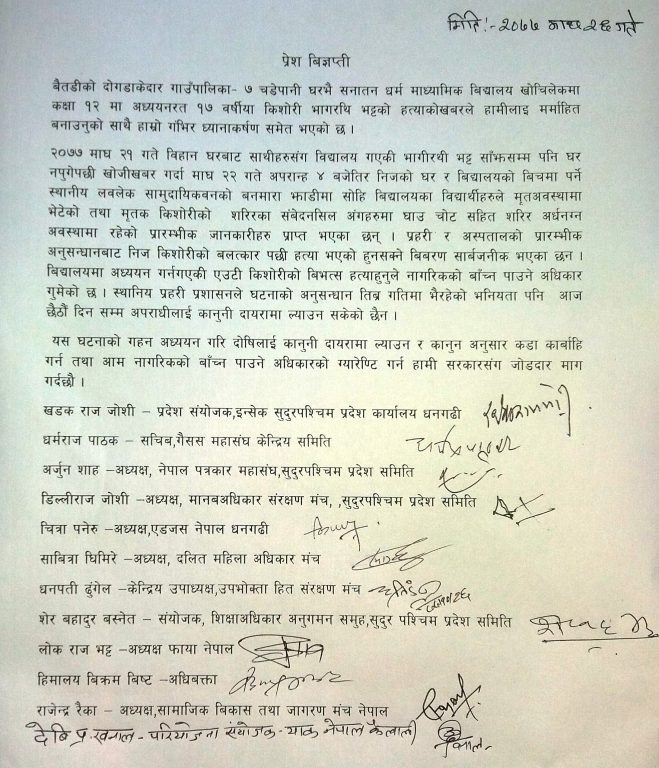 मिति:- २०७७ माघ २६ गते
प्रेश बिज्ञप्ती
बैतडीको दोगडाकेदार गाउँपालिका- ७ चडेपानी घरभै सनातन धर्म माध्यामिक बिद्यालय खोचिलेकमा
कक्षा १२ मा अध्ययनरत १७ वर्षीया किशोरी भागरथि भट्टको हत्याकोखबरले हामीलाइ मर्माहित
बनाउनुको साथै हाम्रो गंभिर ध्यानाकर्षण समेत भएको छ ।
२०७७ माघ २१ गते बिहान घरबाट साथीहरुसंग विद्यालय गएकी भागीरथी भट्ट साँझसम्म पनि घर
नपुगेपछी खोजीखबर गर्दा माघ २२ गते अपरान्ह ४ बजेतिर निजको घर र बिद्यालयको बिचमा पर्ने
स्थानीय लवलेक सामुदायिकवनको बनमारा झाडीमा सोहि बिद्यालयका विद्यार्थीहरुले मृतअवस्थामा
भेटेको तथा मृतक किशोरीको शरिरका संबेदनसिल अंगहरुमा घाउ चोट सहित शरिर अर्धनग्न
अवस्थामा रहेको प्रारम्भीक जानकारीहरु प्राप्त भएका छन् । प्रहरी र अस्पतालको प्रारम्भीक
अनुसन्धानबाट निज किशोरीको बलत्कार पछी हत्या भएको हुनसक्ने बिबरण सार्बजनीक भएका छन ।
बिद्यालयमा अध्ययन गर्नगएकी एउटी किशोरीको बिभत्स हत्याहुनुले नागरिकको बाँच्न पाउने अधिकार
गुमेको छ । स्थानिय प्रहरी प्रशासनले घटनाको अनुसन्धान तिब्र गतिमा भैरहेको भनियता पनि आज
छैठौं दिन सम्म अपराधीलाई कानुनी दायरामा ल्याउन सकेको छैन ।
यस घटनाको गहन अध्ययन गरि दोषिलाई कानुनी दायरामा ल्याउन र कानुन अनुसार कडा कार्बाहि
गर्न तथा आम नागरिकको बाँच्न पाउने अधिकारको ग्यारेण्टि गर्न हामी सरकारसंग जोडदार माग
गर्दछौ ।
खडक राज जोशी – प्रदेश संयोजक,इन्सेक सुदुरपश्चिम प्रदेश कार्यालय धनगढी
धर्मराज पाठक – सचिब,गैसस महासंघ केन्द्रिय समिति
अर्जुन शाह –अध्यक्ष, नेपाल पत्रकार महासंघ,सुदुरपश्चिम प्रदेश समिति
डिल्लीराज जोशी –अध्यक्ष, मानबअधिकार संरक्षण मंच, ,सुदुरपश्चिम प्रदेश समिति
चित्रा पनेरु –अध्यक्ष,एडजस नेपाल धनगढी
साबित्रा घिमिरे –अध्यक्ष, दलित महिला अधिकार मंच
धनपती ढुंगेल –केन्द्रिय उपाध्यक्ष,उपभोक्ता हित संरक्षण मंच
शेर बहादुर बस्नेत – संयोजक, शिक्षाअधिकार अनुगमन समुह,सुदुर पश्चिम प्रदेश समिति
लोक राज भट्ट –अध्यक्ष फाया नेपाल
हिमालय बिक्रम बिष्ट –अधिबक्ता
राजेन्द्र रैका – अध्यक्ष,सामाजिक बिकास तथा जागरण मंच नेपाल
देबि प्र. खनाल - परियोजना संयोजक - याक नेपाल कैलाली